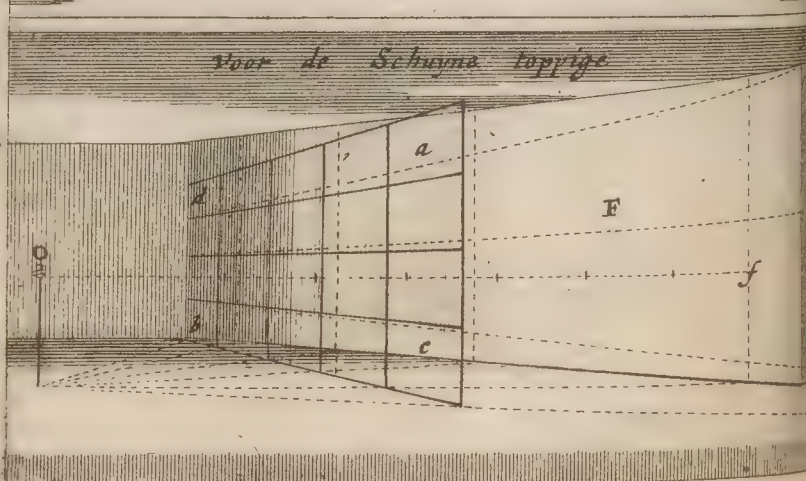 Voor de Schuyne toppige
a
d
F
f
b
c